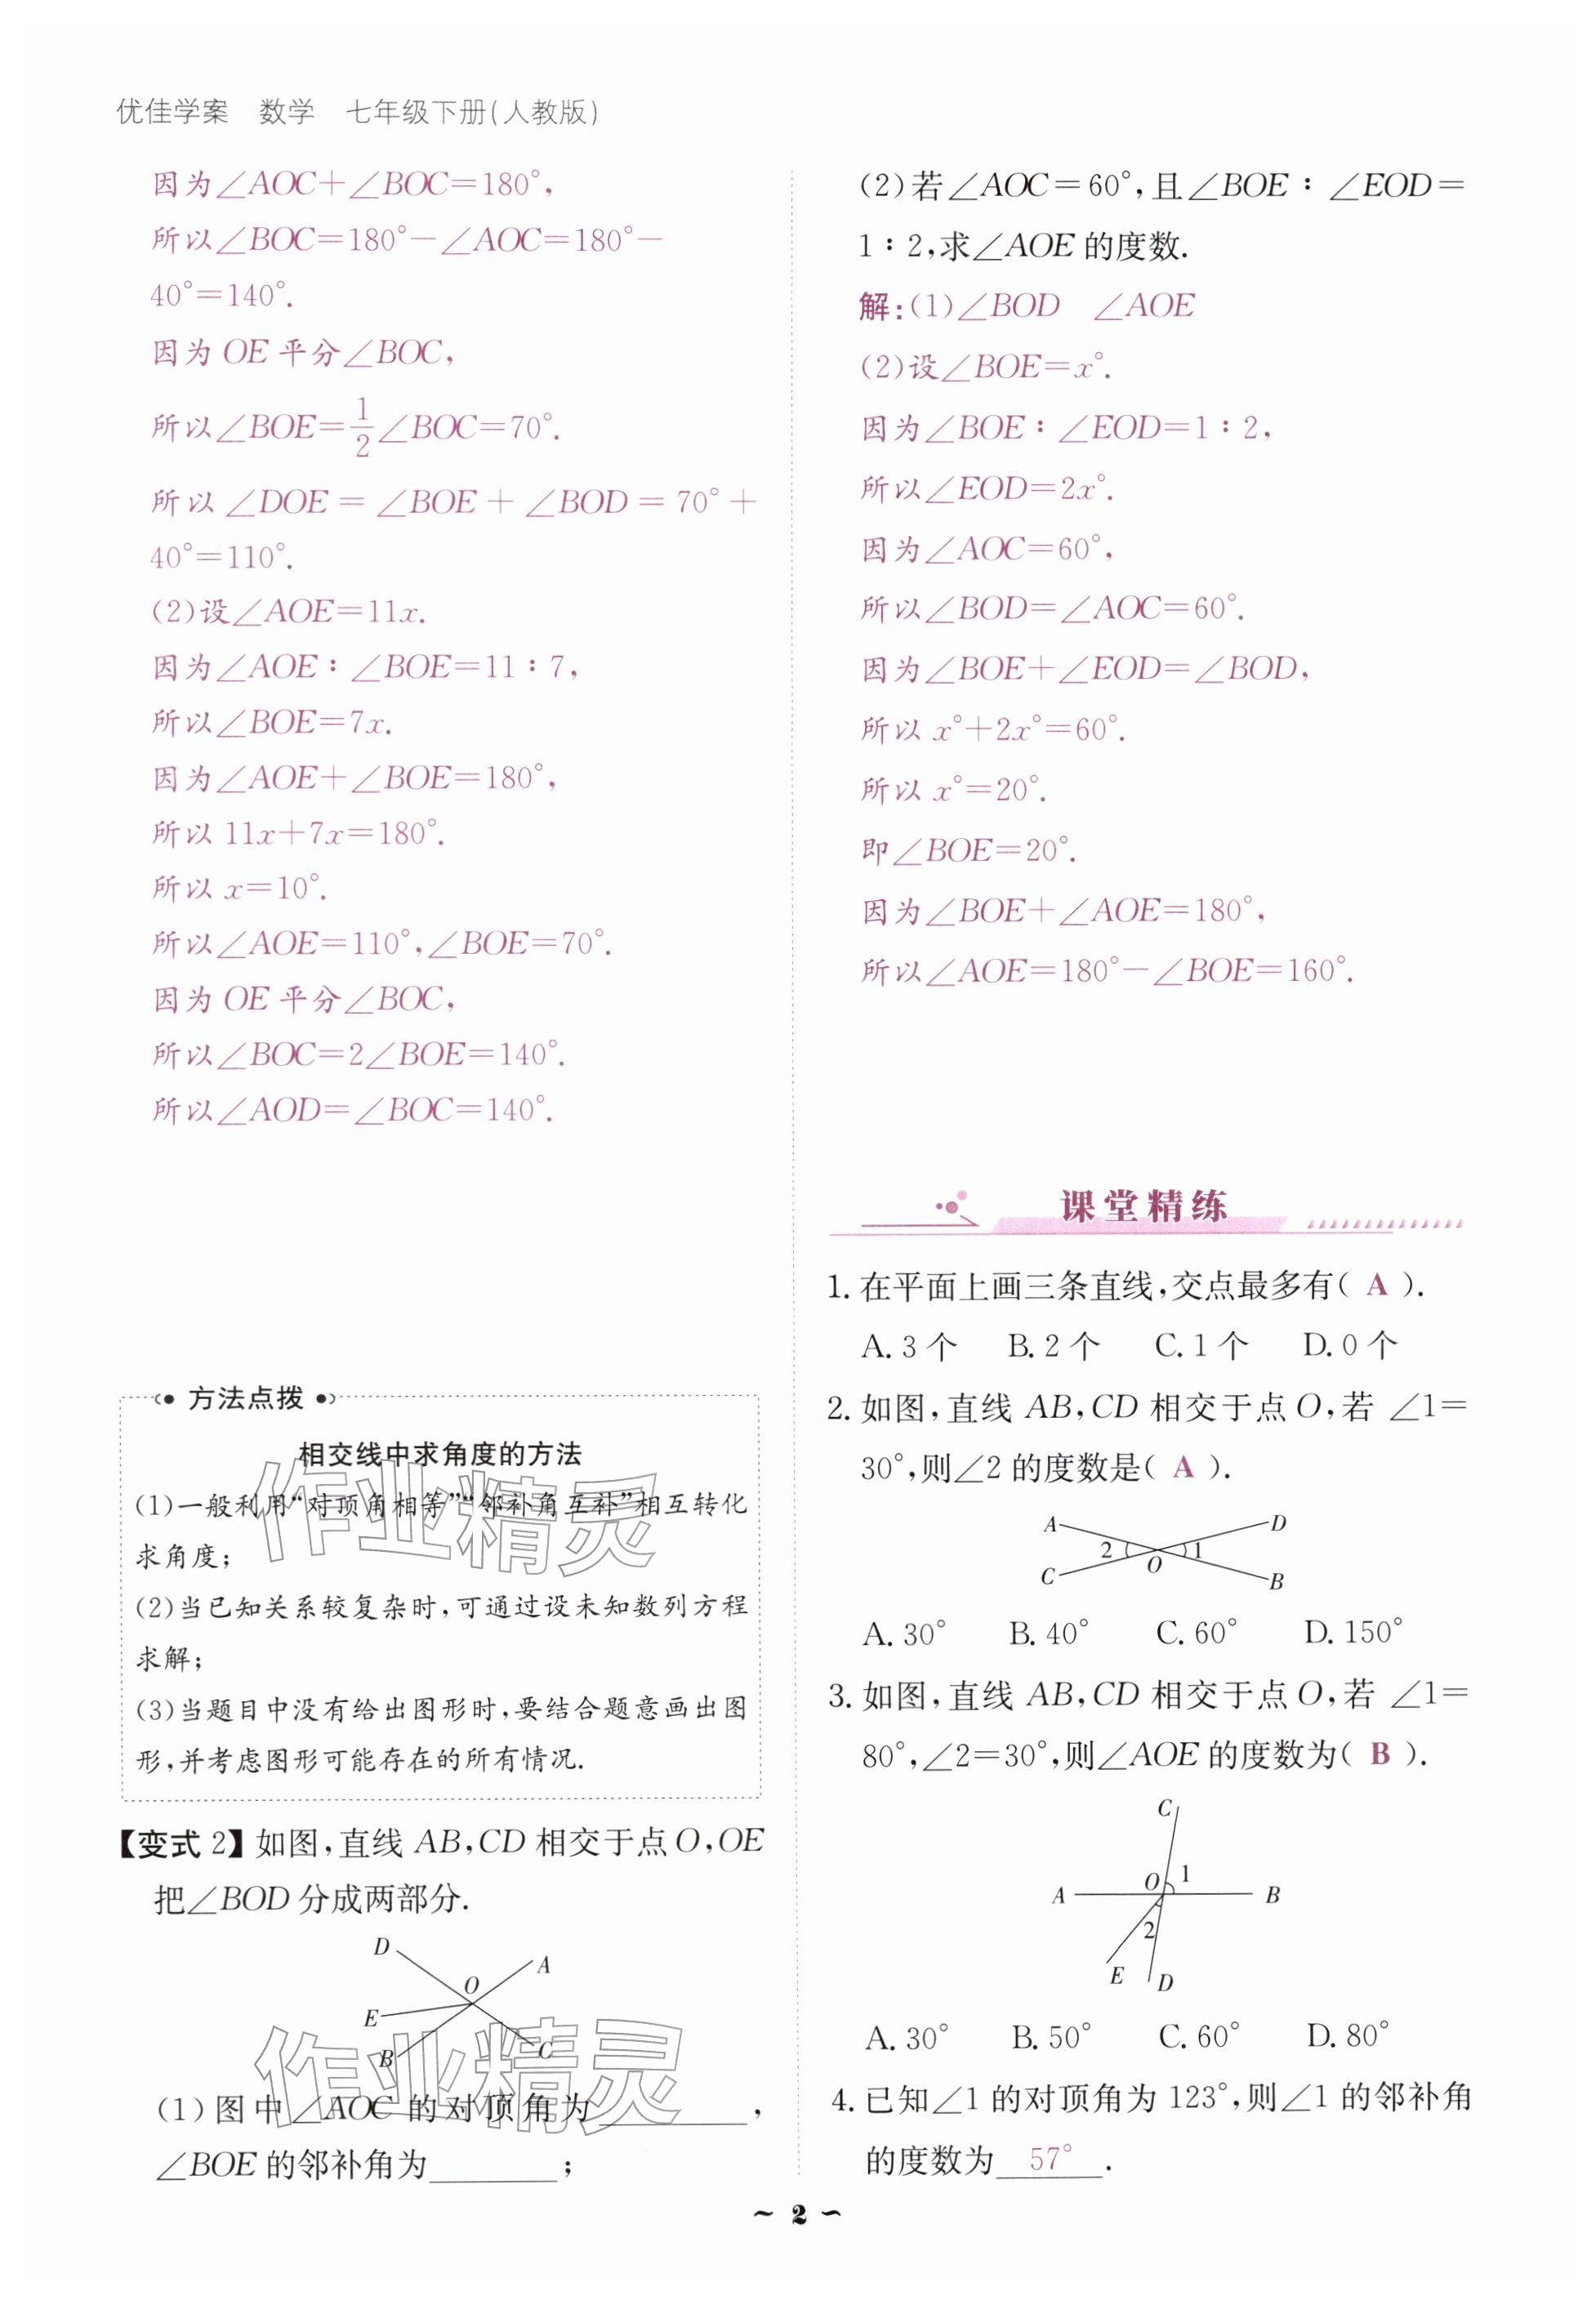 优佳学案 数学 七年级下册(人教版)
因为∠AOC+∠BOC=180°,
所以∠BOC=180°-∠AOC=180°-
40°=140°.
因为OE平分∠BOC,
所以∠BOE=1/2∠BOC=70°.
所以∠DOE=∠BOE+∠BOD=70°+
40°=110°.
(2)设∠AOE=11x.
因为∠AOE∶∠BOE=11∶7,
所以∠BOE=7x.
因为∠AOE+∠BOE=180°,
所以11x+7x=180°.
所以x=10°.
所以∠AOE=110°,∠BOE=70°.
因为OE平分∠BOC,
所以∠BOC=2∠BOE=140°.
所以∠AOD=∠BOC=140°.
方法点拨
相交线中求角度的方法
(1)一般利用“对顶角相等”“邻补角互补”相互转化
求角度;
(2)当已知关系较复杂时,可通过设未知数列方程
求解;
(3)当题目中没有给出图形时,要结合题意画出图
形,并考虑图形可能存在的所有情况.
作业精灵
【变式2】如图,直线AB,CD相交于点O,OE
把∠BOD分成两部分.
D
A
O
E
B
C
作业精灵
(1)图中∠AOC的对顶角为________,
∠BOE的邻补角为________;
(2)若∠AOC=60°,且∠BOE∶∠EOD=
1∶2,求∠AOE的度数.
解:(1)∠BOD ∠AOE
(2)设∠BOE=x°.
因为∠BOE∶∠EOD=1∶2,
所以∠EOD=2x°.
因为∠AOC=60°,
所以∠BOD=∠AOC=60°.
因为∠BOE+∠EOD=∠BOD,
所以x°+2x°=60°.
所以x°=20°.
即∠BOE=20°.
因为∠BOE+∠AOE=180°,
所以∠AOE=180°-∠BOE=160°.
课堂精练
1.在平面上画三条直线,交点最多有( A ).
A.3个 B.2个 C.1个 D.0个
2.如图,直线AB,CD相交于点O,若∠1=
30°,则∠2的度数是( A ).
A D
2 O 1
C B
A.30° B.40° C.60° D.150°
3.如图,直线AB,CD相交于点O,若∠1=
80°,∠2=30°,则∠AOE的度数为( B ).
C
O 1
A B
2
E D
A.30° B.50° C.60° D.80°
4.已知∠1的对顶角为123°,则∠1的邻补角
的度数为 57° .
~ 2 ~